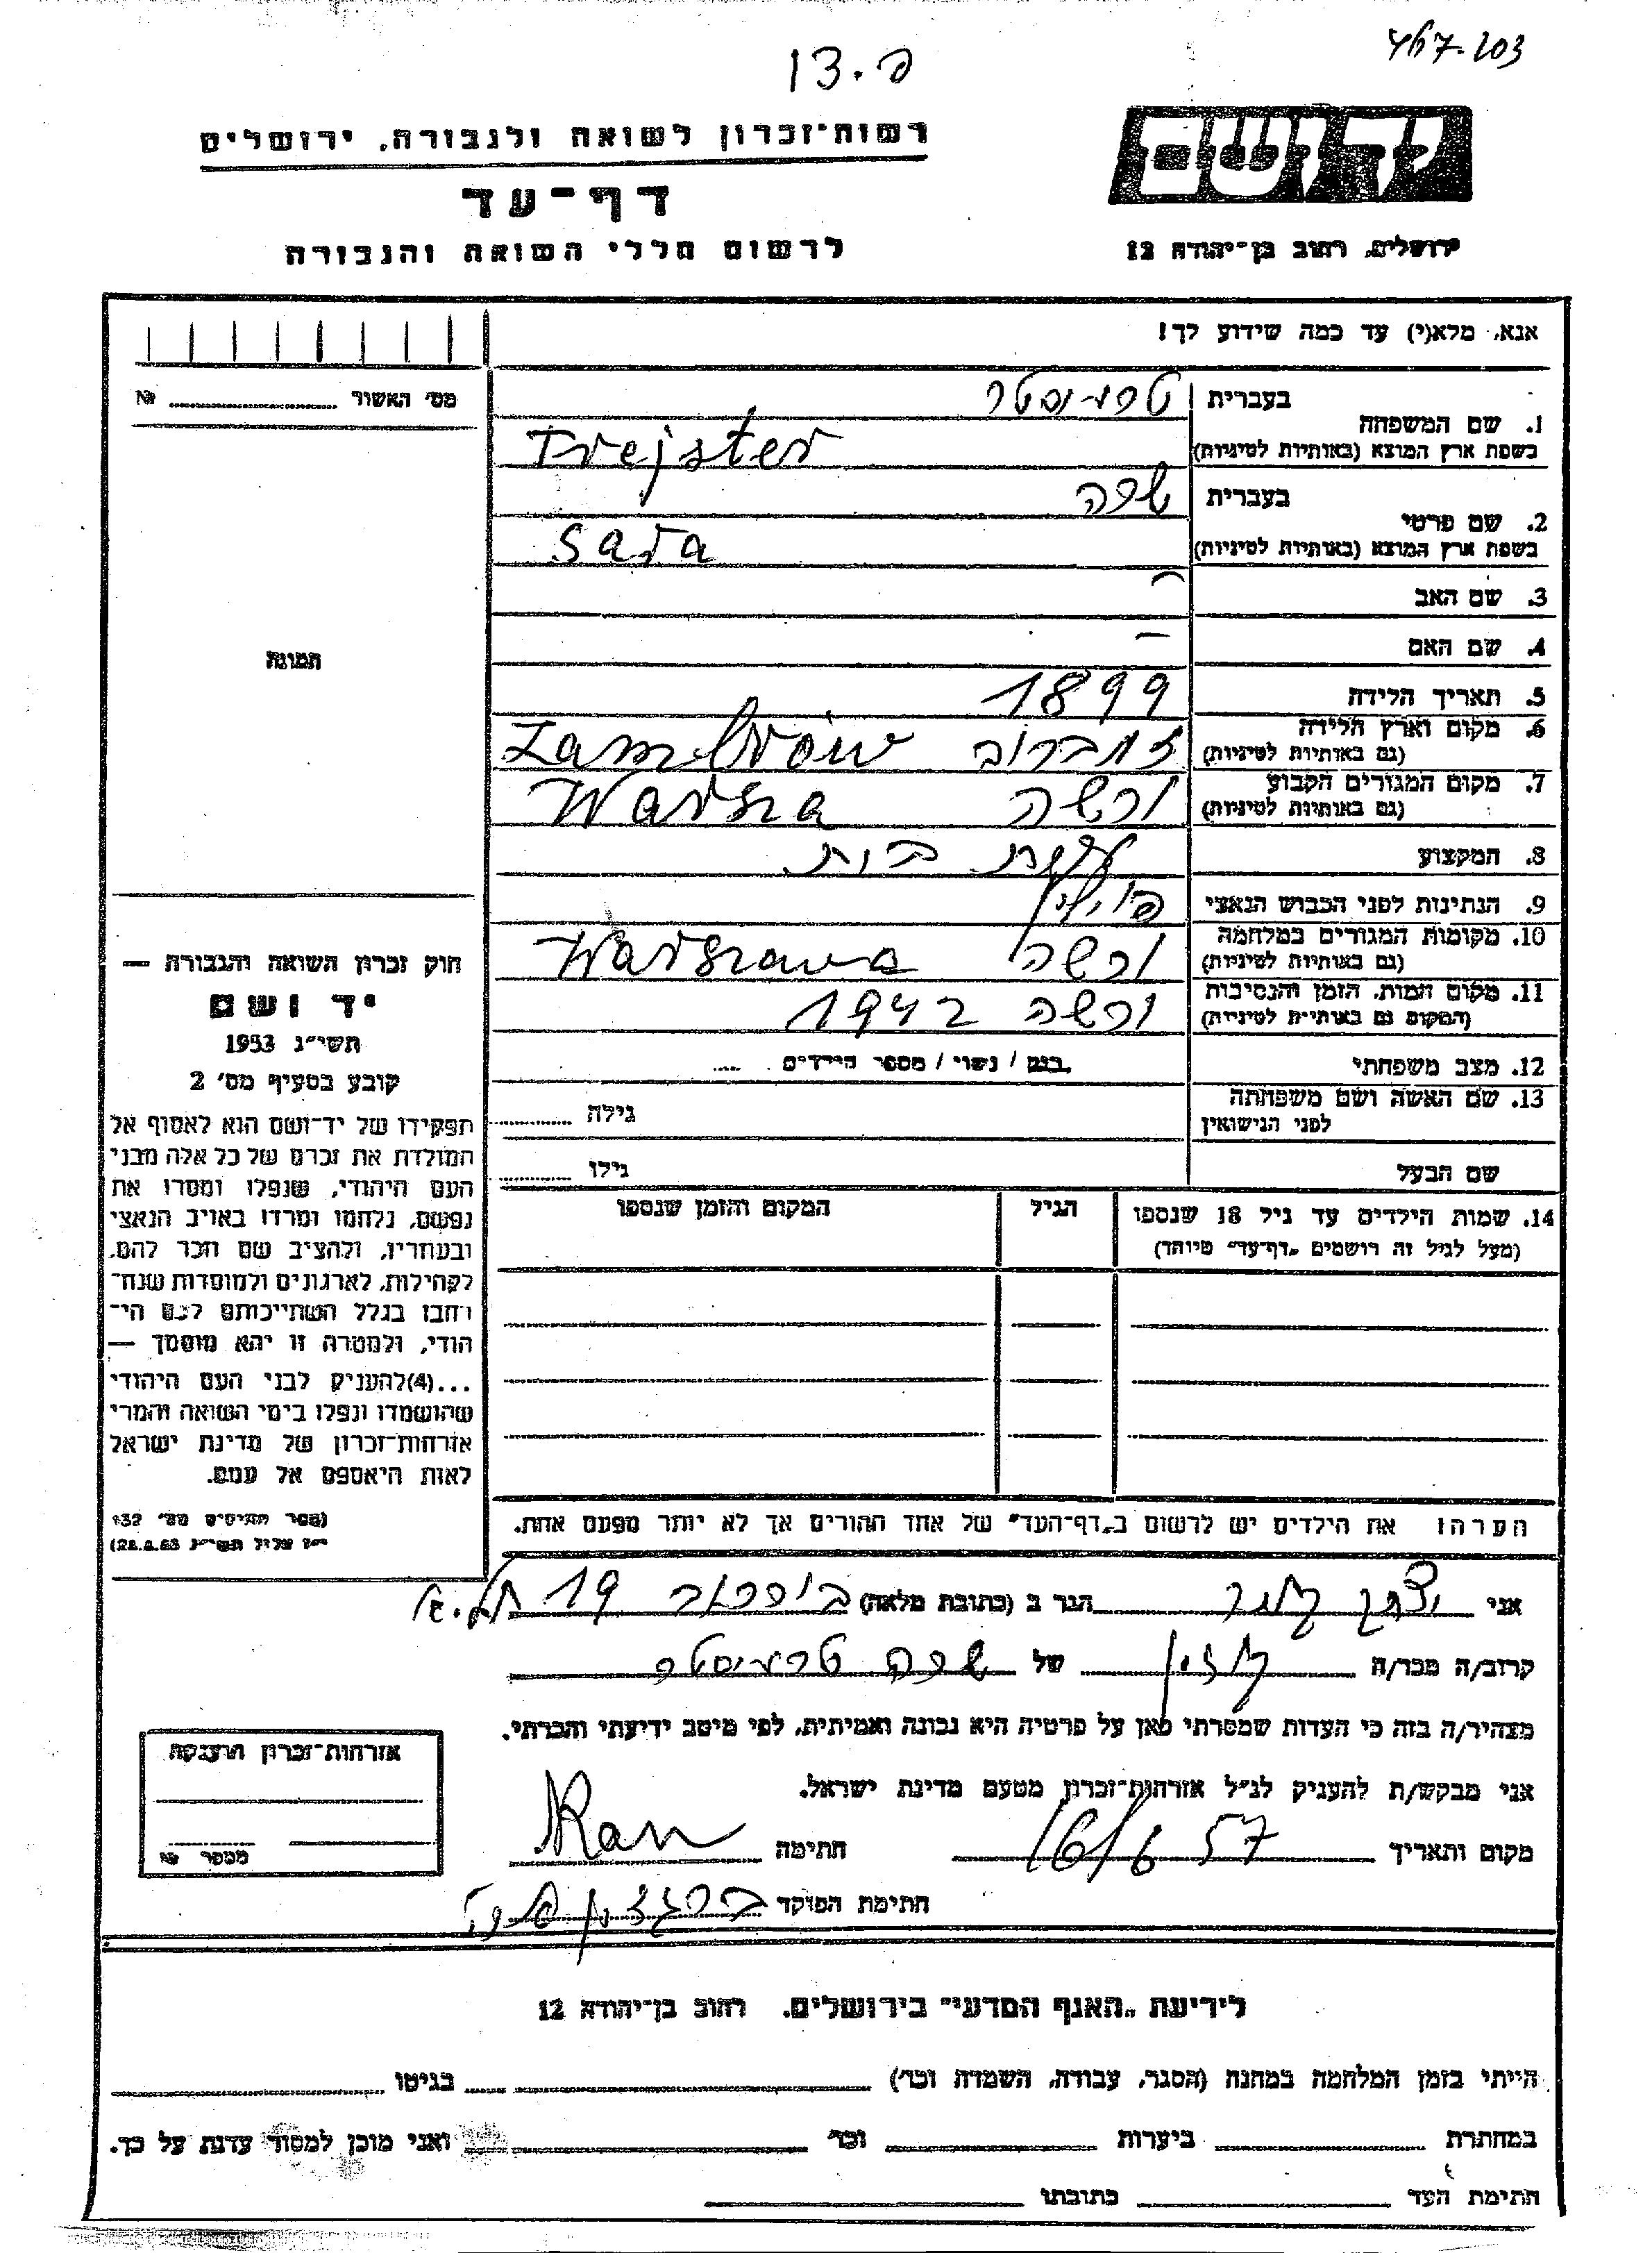 467.203
13.פ
יד ושם
רשות־זכרון לשואה ולגבורה, ירושלים
דף־עד
לרשום חללי השואה והגבורה
ירושלים, רחוב בן־יהודה 12
אנא, מלא(י) עד כמה שידוע לך!
מס׳ האשור №
1. שם המשפחה
בעברית טרייסטר
בשפת ארץ המוצא (באותיות לטיניות) Trejster
2. שם פרטי
בעברית שרה
בשפת ארץ המוצא (באותיות לטיניות) Sara
3. שם האב –
4. שם האם –
5. תאריך הלידה 1899
6. מקום וארץ הלידה
(גם באותיות לטיניות) זמברוב Zambrów
7. מקום המגורים הקבוע
(גם באותיות לטיניות) ורשה Warsza
8. המקצוע עקרת בית
9. הנתינות לפני הכבוש הנאצי פולין
10. מקומות המגורים במלחמה
(גם באותיות לטיניות) ורשה Warszawa
11. מקום המות, הזמן והנסיבות
(המקום גם באותיות לטיניות) ורשה 1942
12. מצב משפחתי רווק / נשוי / מספר הילדים
13. שם האשה ושם משפחתה
לפני הנישואין גילה
שם הבעל גילו
14. שמות הילדים עד גיל 18 שנספו הגיל המקום והזמן שנספו
(מעל לגיל זה רושמים "דף־עד" מיוחד)
הערה! את הילדים יש לרשום ב"דף־העד" של אחד ההורים אך לא יותר מפעם אחת.
תמונה
חוק זכרון השואה והגבורה —
יד ושם
תשי״ג 1953
קובע בסעיף מס׳ 2
תפקידו של יד־ושם הוא לאסוף אל
המולדת את זכרם של כל אלה מבני
העם היהודי, שנפלו ומסרו את
נפשם, נלחמו ומרדו באויב הנאצי
ובעוזריו, ולהציב שם וזכר להם,
לקהילות, לארגונים ולמוסדות שנח־
רחבו בגלל השתייכותם לעם הי־
הודי, ולמטרה זו יהא מוסמך —
...(4) להעניק לבני העם היהודי
שהושמדו ונפלו בימי השואה והמרי
אזרחות־זכרון של מדינת ישראל
לאות היאספם אל עמם.
(ספר החוקים מס׳ 132
י״ז אלול תשי״ג 28.8.53)
אני יצחק הגר ב (כתובת מלאה) 19 ת.א.
קרוב/ה מכר/ה של שרה טרייסטר
מצהיר/ה בזה כי העדות שמסרתי כאן על פרטיה היא נכונה ואמיתית, לפי מיטב ידיעתי והכרתי.
אני מבקש/ת להעניק לנ״ל אזרחות־זכרון מטעם מדינת ישראל.
מקום ותאריך 16/6 57 חתימה
חתימת הפוקד
אזרחות־זכרון הוענקה
מספר №
לידיעת "האגף המדעי" בירושלים. רחוב בן־יהודה 12
הייתי בזמן המלחמה במחנה (הסגר, עבודה, השמדה וכו׳) בגיטו
במחתרת ביערות וכו׳ ואני מוכן למסור עדות על כך.
חתימת העד כתובתו